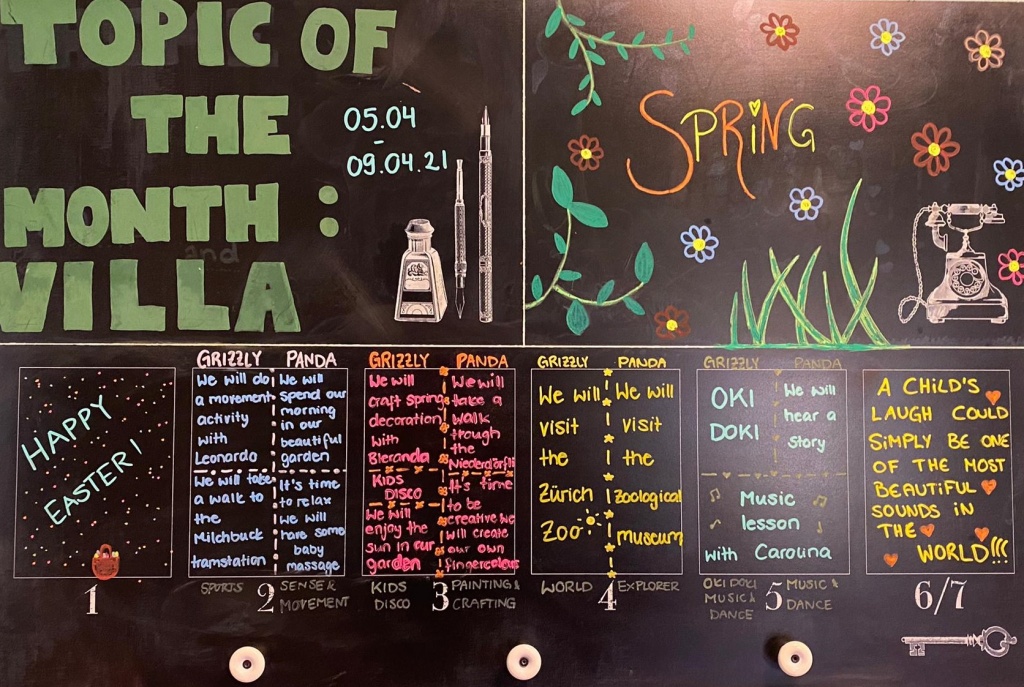 TOPIC OF
THE
MONTH :
VILLA
and
05.04
-
09.04.21
SPRING
HAPPY
EASTER!
1
GRIZZLY
We will do
a movement
activity
with
Leonardo
We will take
a walk to
the
Milchbuck
tramstation
SPORTS
PANDA
We will
spend our
morning
in our
beautiful
garden
It's time
to relax
we will
have some
baby
massage
SENSE &
MOVEMENT
2
GRIZZLY
We will
craft Spring
decoration
with
Bleranda
KIDS
DISCO
We will
enjoy the
sun in our
garden
KIDS
DISCO
PANDA
We will
take a
walk
trough
the
Niederdörfli
It's time
to be
creative we
will create
our own
fingercolours
PAINTING &
CRAFTING
3
GRIZZLY
We will
visit
the
Zürich
Zoo
WORLD
PANDA
We will
visit
the
zoological
museum
EXPLORER
4
GRIZZLY
OKI
DOKI
PANDA
We will
hear a
story
Music
lesson
with Carolina
OKI DOKI
MUSIC &
DANCE
MUSIC &
DANCE
5
A CHILD'S
LAUGH COULD
SIMPLY BE ONE
OF THE MOST
BEAUTIFUL
SOUNDS IN
THE
WORLD!!!
6/7